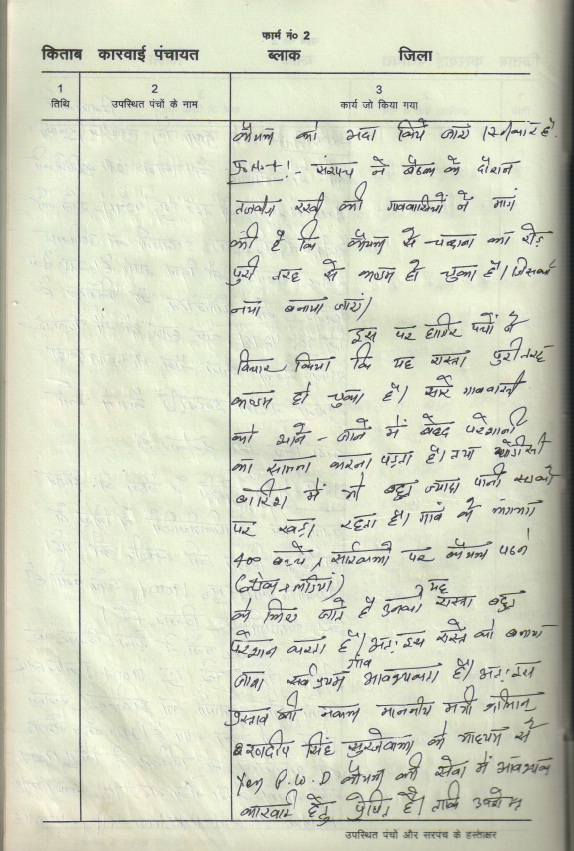 फार्म नं० 2
किताब कारवाई पंचायत ब्लाक जिला
1 2 3
तिथि उपस्थित पंचों के नाम कार्य जो किया गया
कैथल को अदा किये जाए। स्वीकार है।
सरपंच ने बैठक के दौरान
तजवीज रखी की गाववासियों ने मांग
की है कि कैथल से चन्दाना का रोड़
पुरी तरह से कण्डम हो चुका है। जिसको
नया बनाया जाए।
इस पर हाजिर पंचों ने
विचार किया कि यह रास्ता पुरी तरह
कण्डम हो चुका है। सारे गाववासी
को आने - जाने में बेहद परेशानी
का सामना करना पड़ता है। तथा थोड़ी सी
बारिश में भी बहुत ज्यादा पानी सड़को
पर खड़ा रहता है। गांव के लगभग
400 बच्चे साईकलों पर कैथल पढने
(लड़के व लड़कियां)
के लिए जाते है उनको यह रास्ता बहुत
परेशान करता है। अतः इस रास्ते को बनाया
जाना सर्वप्रथम आवश्यकता है। अतः इस
प्रस्ताव की नकल माननीय मंत्री श्रीमान
रणदीप सिंह सुरजेवाला के माध्यम से
P.W.D कैथल की सेवा में आवश्यक
कारवाई हेतु प्रेषित है। ताकि
उपस्थित पंचों और सरपंच के हस्ताक्षर